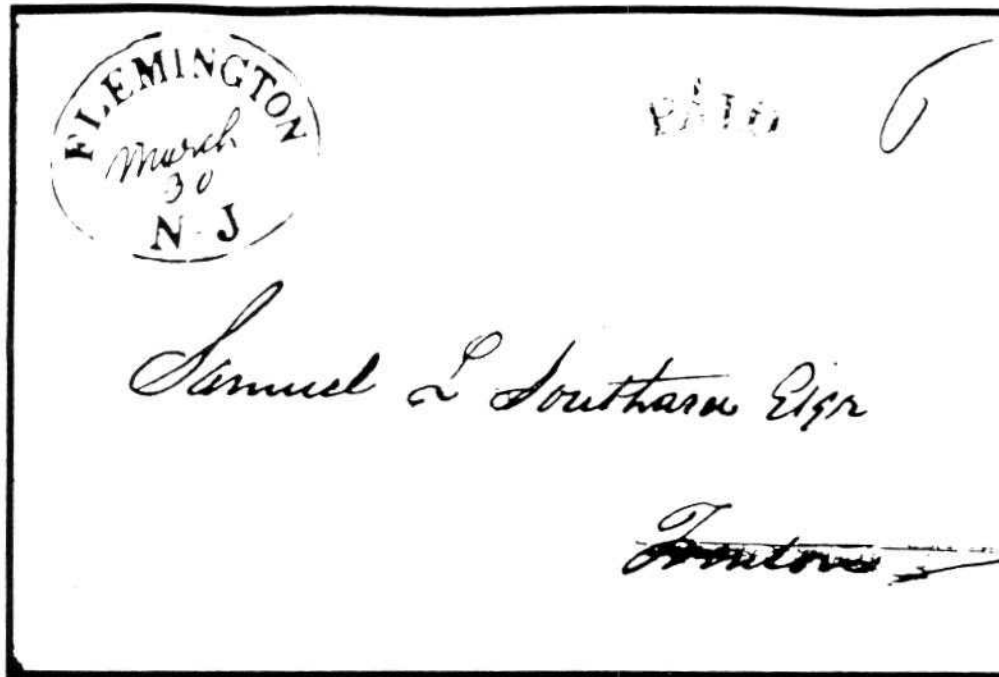 FLEMINGTON
March
30
N J
PAID 6
Samuel L Southard Esqr
Trenton